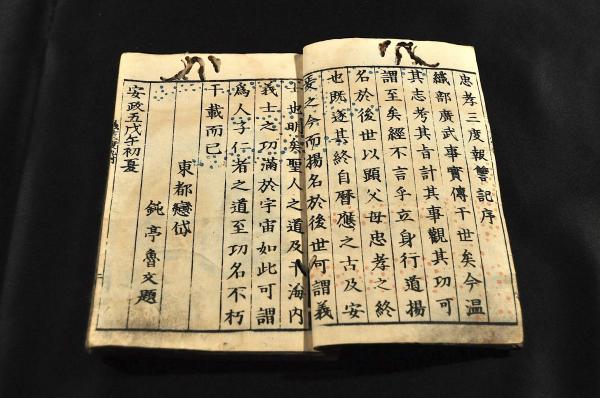 忠孝三度報讐記序
織部廣武事實傳于世矣今温
其志考其旨計其事觀其功可
謂至矣經不言乎立身行道揚
名於後世以顯父母忠孝之終
也既逐其終自暦應之古及安
之今而揚名於後世可謂義
也明矣聖人之道及于海内
義士之功滿於宇宙如此可謂
爲人子仁者之道至功名不朽
千載而已
東都戀岱
鈍亭魯文題
安政五戊午初夏